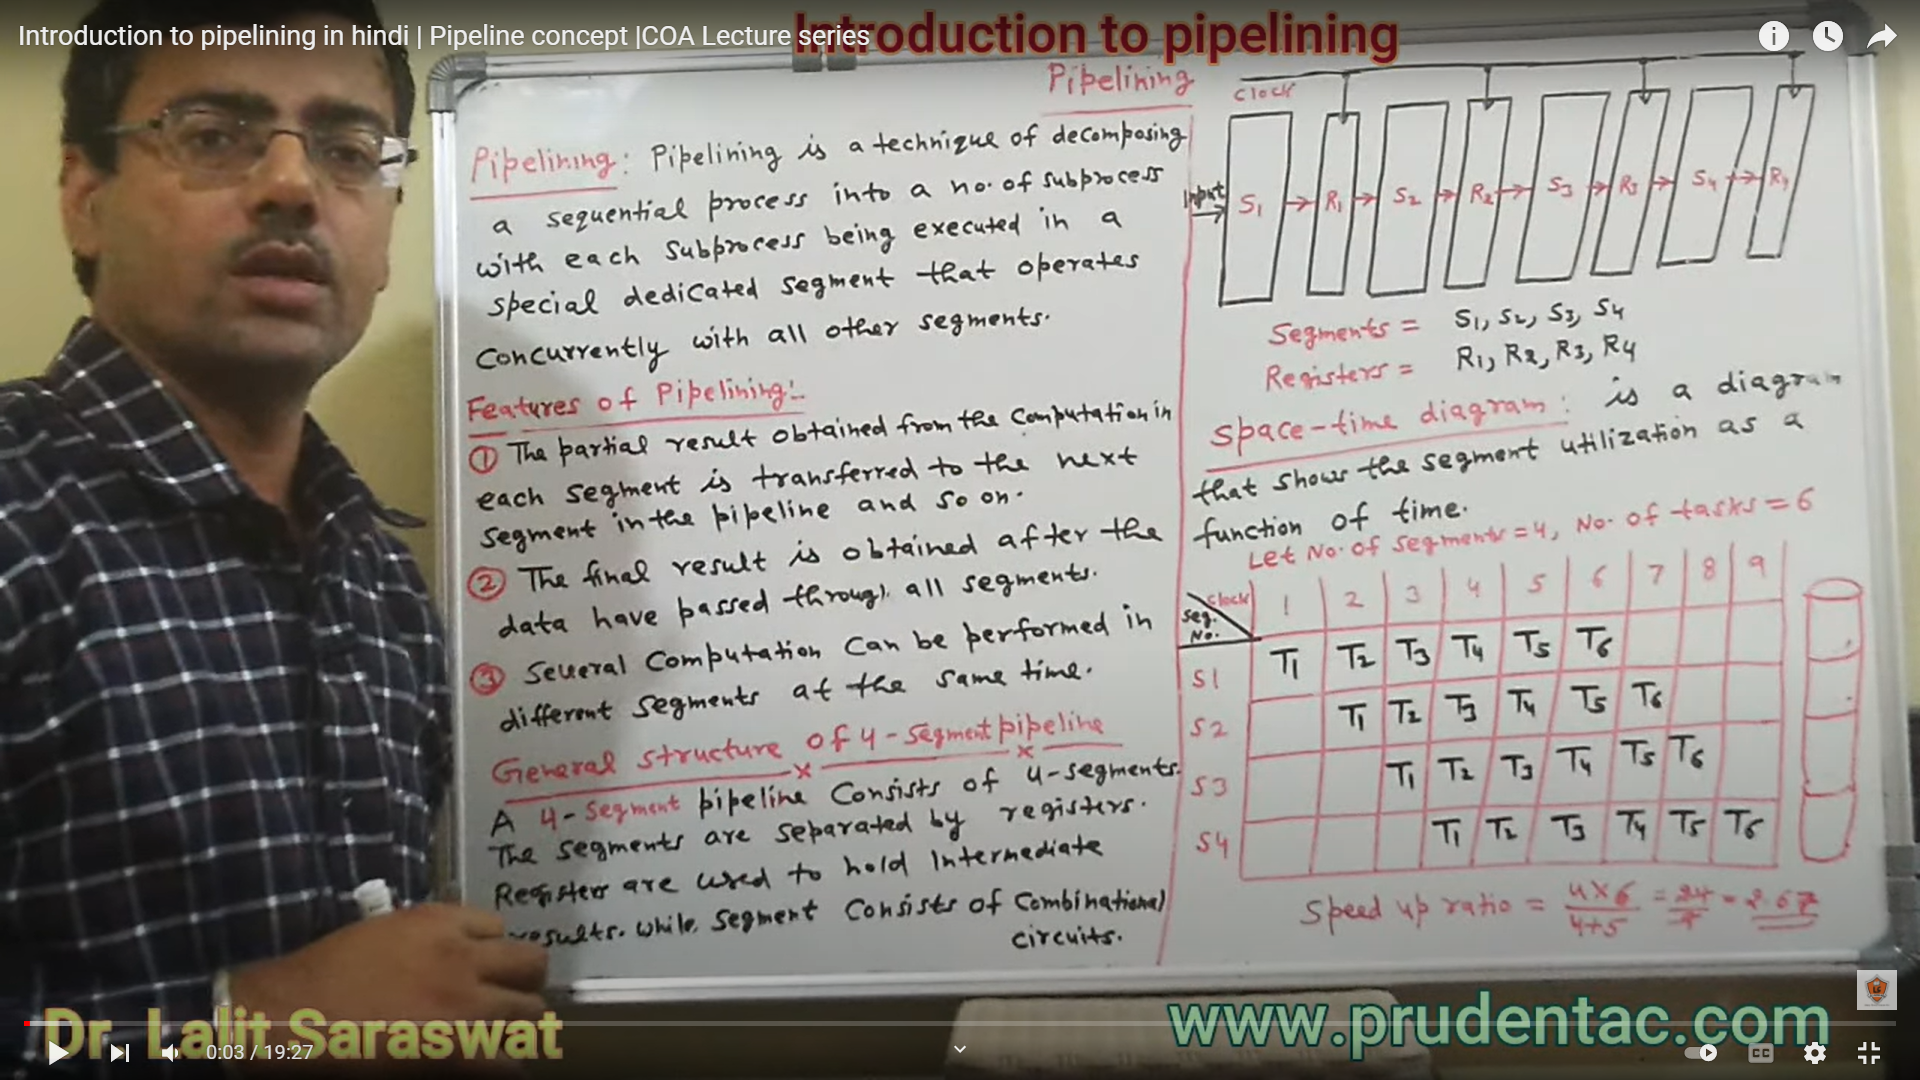 Introduction to pipelining in hindi | Pipeline concept |COA Lecture series
Introduction to pipelining
Pipelining
Pipelining: Pipelining is a technique of decomposing
a sequential process into a no. of subprocess
with each subprocess being executed in a
special dedicated segment that operates
Concurrently with all other segments.
Features of Pipelining:-
① The partial result obtained from the computation in
each segment is transferred to the next
segment in the pipeline and so on.
② The final result is obtained after the
data have passed through all segments.
③ Several Computation Can be performed in
different segments at the same time.
General structure of 4-segment pipeline
A 4-segment pipeline Consists of 4-segments.
The segments are separated by registers.
Registers are used to hold Intermediate
results. while segment Consists of Combinational
circuits.
Clock
Input S1 R1 S2 R2 S3 R3 S4 R4
Segments = S1, S2, S3, S4
Registers = R1, R2, R3, R4
Space-time diagram: is a diagram
that shows the segment utilization as a
function of time.
Let No. of segments = 4, No. of tasks = 6
Clock 1 2 3 4 5 6 7 8 9
Seg.
No.
S1 T1 T2 T3 T4 T5 T6
S2 T1 T2 T3 T4 T5 T6
S3 T1 T2 T3 T4 T5 T6
S4 T1 T2 T3 T4 T5 T6
Speed up ratio = 4×6 / 4+5 = 24 / 9 = 2.67
Dr. Lalit Saraswat
www.prudentac.com
0:03 / 19:27
CC